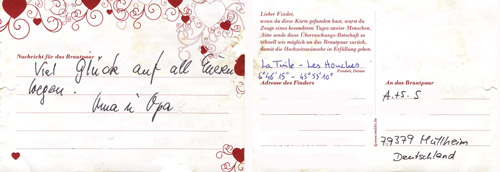 Nachricht für das Brautpaar
Viel Glück auf all Euren
wegen.
Oma u Opa
Lieber Finder,
wenn du diese Karte gefunden hast, warst du
Zeuge eines besonderen Tages zweier Menschen.
Bitte sende diese Überraschungs-Botschaft so
schnell wie möglich an das Brautpaar zurück,
damit die Hochzeitswünsche in Erfüllung gehen.
La Tuile - Les Houches
6°46'15" - 45°53'10"
Fundort, Datum
Adresse des Finders
An das Brautpaar
A.+S. S
79379 Müllheim
Deutschland